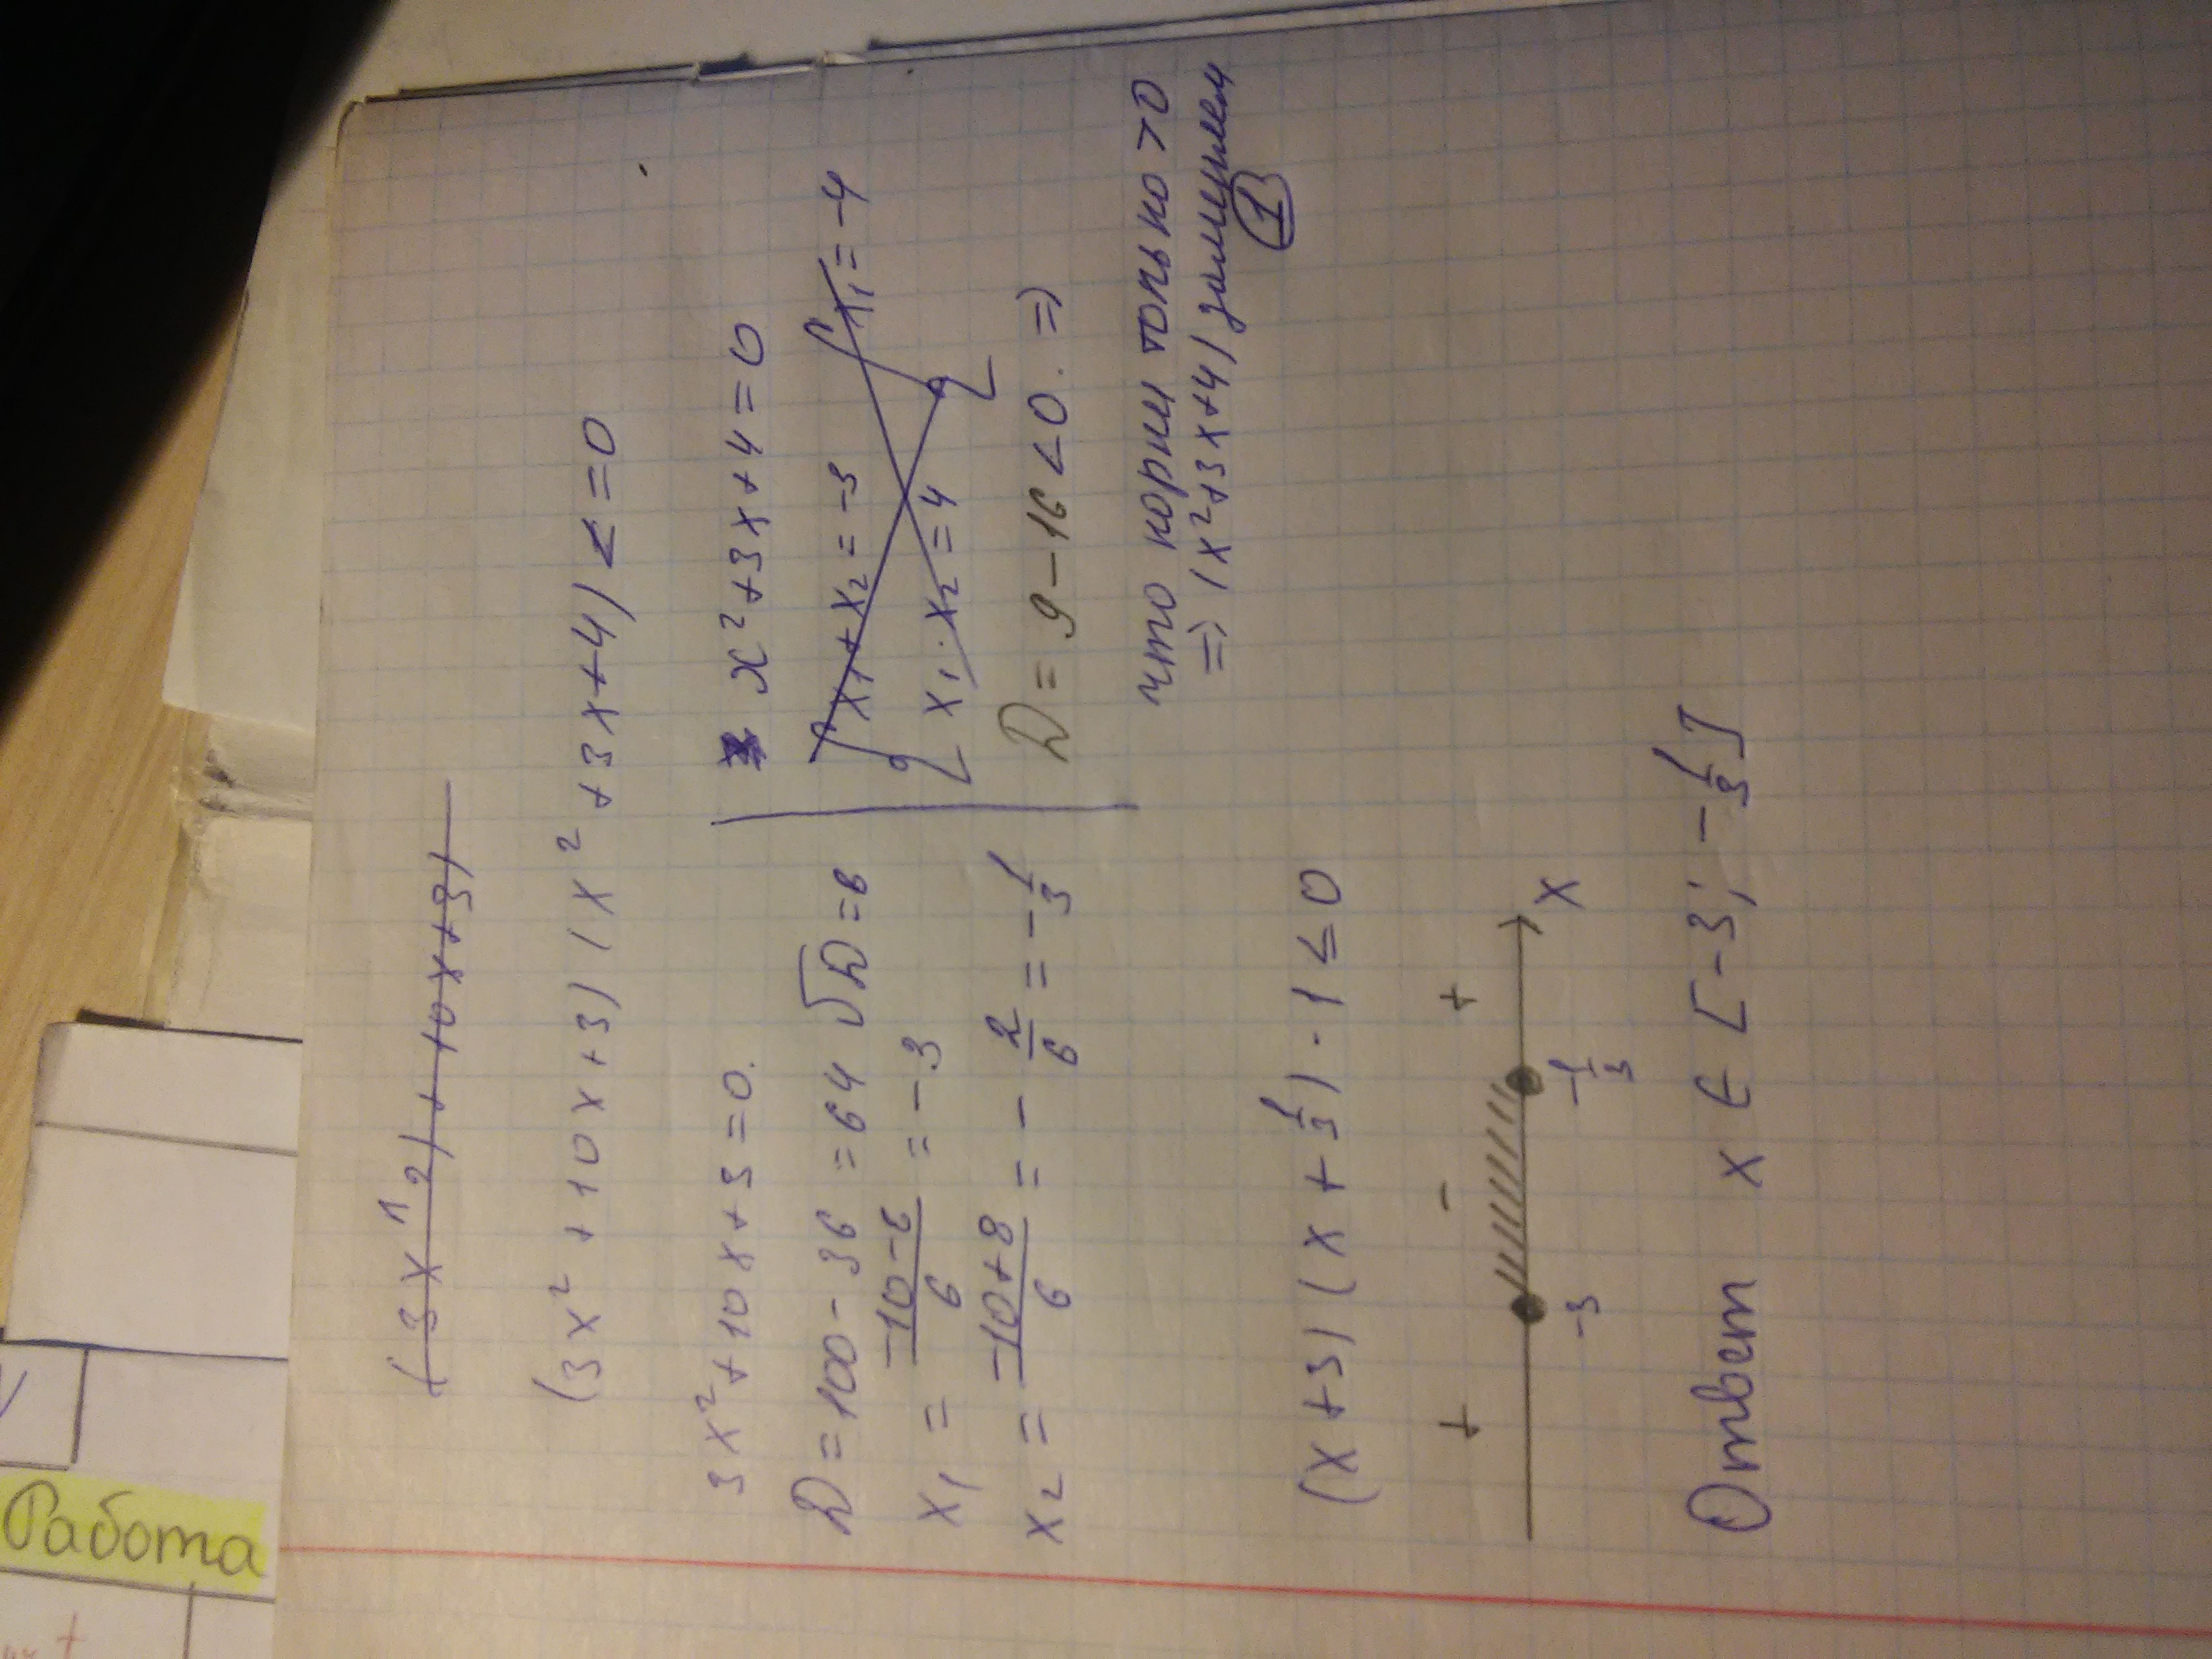 Работа
(3x^2)+10x+3)
(3x² + 10x+3) (x² + 3x+4) <=0
3x²+10x+3=0.
D=100-36=64 √D=8
x₁ = -10-8/6 = -3
x₂ = -10+8/6 = - 2/6 = - 1/3
x²+3x+4=0
x₁+x₂=-3
x₁=-4
x₁·x₂=4
D=9-16<0. =>
что корни только >0
=> (x²+3x+4) заменяем
1
(x+3)(x+1/3)·1≤0
+ - +
-3 -1/3 x
Ответ x ∈ [-3; -1/3]